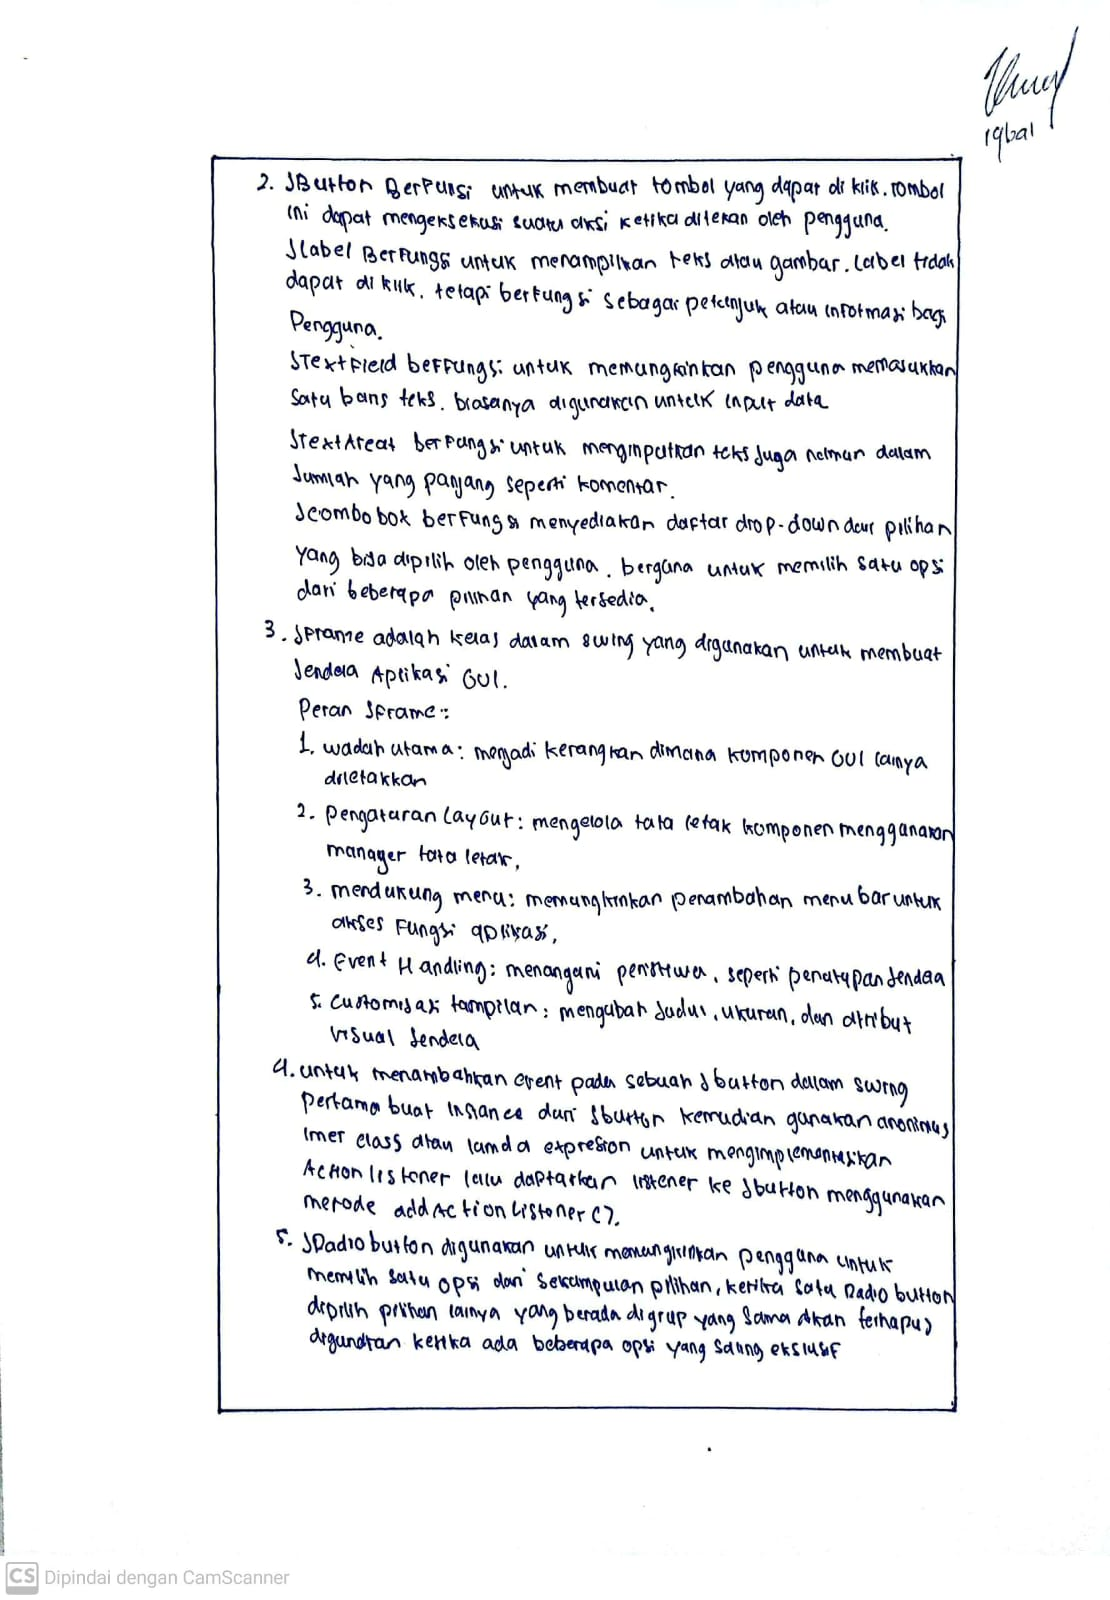 Iqbal
2. JButton Berfungsi untuk membuat tombol yang dapat di klik. Tombol
ini dapat mengeksekusi suatu aksi ketika ditekan oleh pengguna.
Jlabel Berfungsi untuk menampilkan teks atau gambar. Label tidak
dapat di klik, tetapi berfungsi sebagai petunjuk atau informasi bagi
Pengguna.
JTextField berfungsi untuk memungkinkan pengguna memasukkan
Satu baris teks. biasanya digunakan untuk input data
JtextAreat berfungsi untuk menginputkan teks juga namun dalam
Jumlah yang panjang seperti komentar.
Jcombobox berfungsi menyediakan daftar drop-down dari pilihan
yang bisa dipilih oleh pengguna. berguna untuk memilih satu opsi
dari beberapa pilihan yang tersedia.
3. Jframe adalah kelas dalam swing yang digunakan untuk membuat
Jendela Aplikasi GUI.
Peran Jframe :
1. wadah utama : menjadi kerangkan dimana komponen GUI lainya
diletakkan
2. Pengaturan Layout : mengelola tata letak komponen menggunakan
manager tata letak,
3. mendukung menu : memungkinkan penambahan menu bar untuk
akses Fungsi aplikasi,
4. Event Handling : menangani peristiwa, seperti penutupan Jendela
5. Customisasi tampilan : mengubah Judul, ukuran, dan atribut
visual Jendela
4. untuk menambahkan event pada sebuah Jbutton dalam swing
pertama buat Insance dari Jbutton kemudian gunakan anonimus
Imer class atau lamda expresion untuk mengimplementasikan
Action listener lalu daftarkan listener ke Jbutton menggunakan
metode addActionListener().
5. JRadiobutton digunakan untuk memungkinkan pengguna untuk
memilih satu opsi dari sekumpulan pilihan, ketika satu Radio button
dipilih pilihan lainya yang berada digrup yang sama akan terhapus
digunakan ketika ada beberapa opsi yang saling ekslusif
CS Dipindai dengan CamScanner